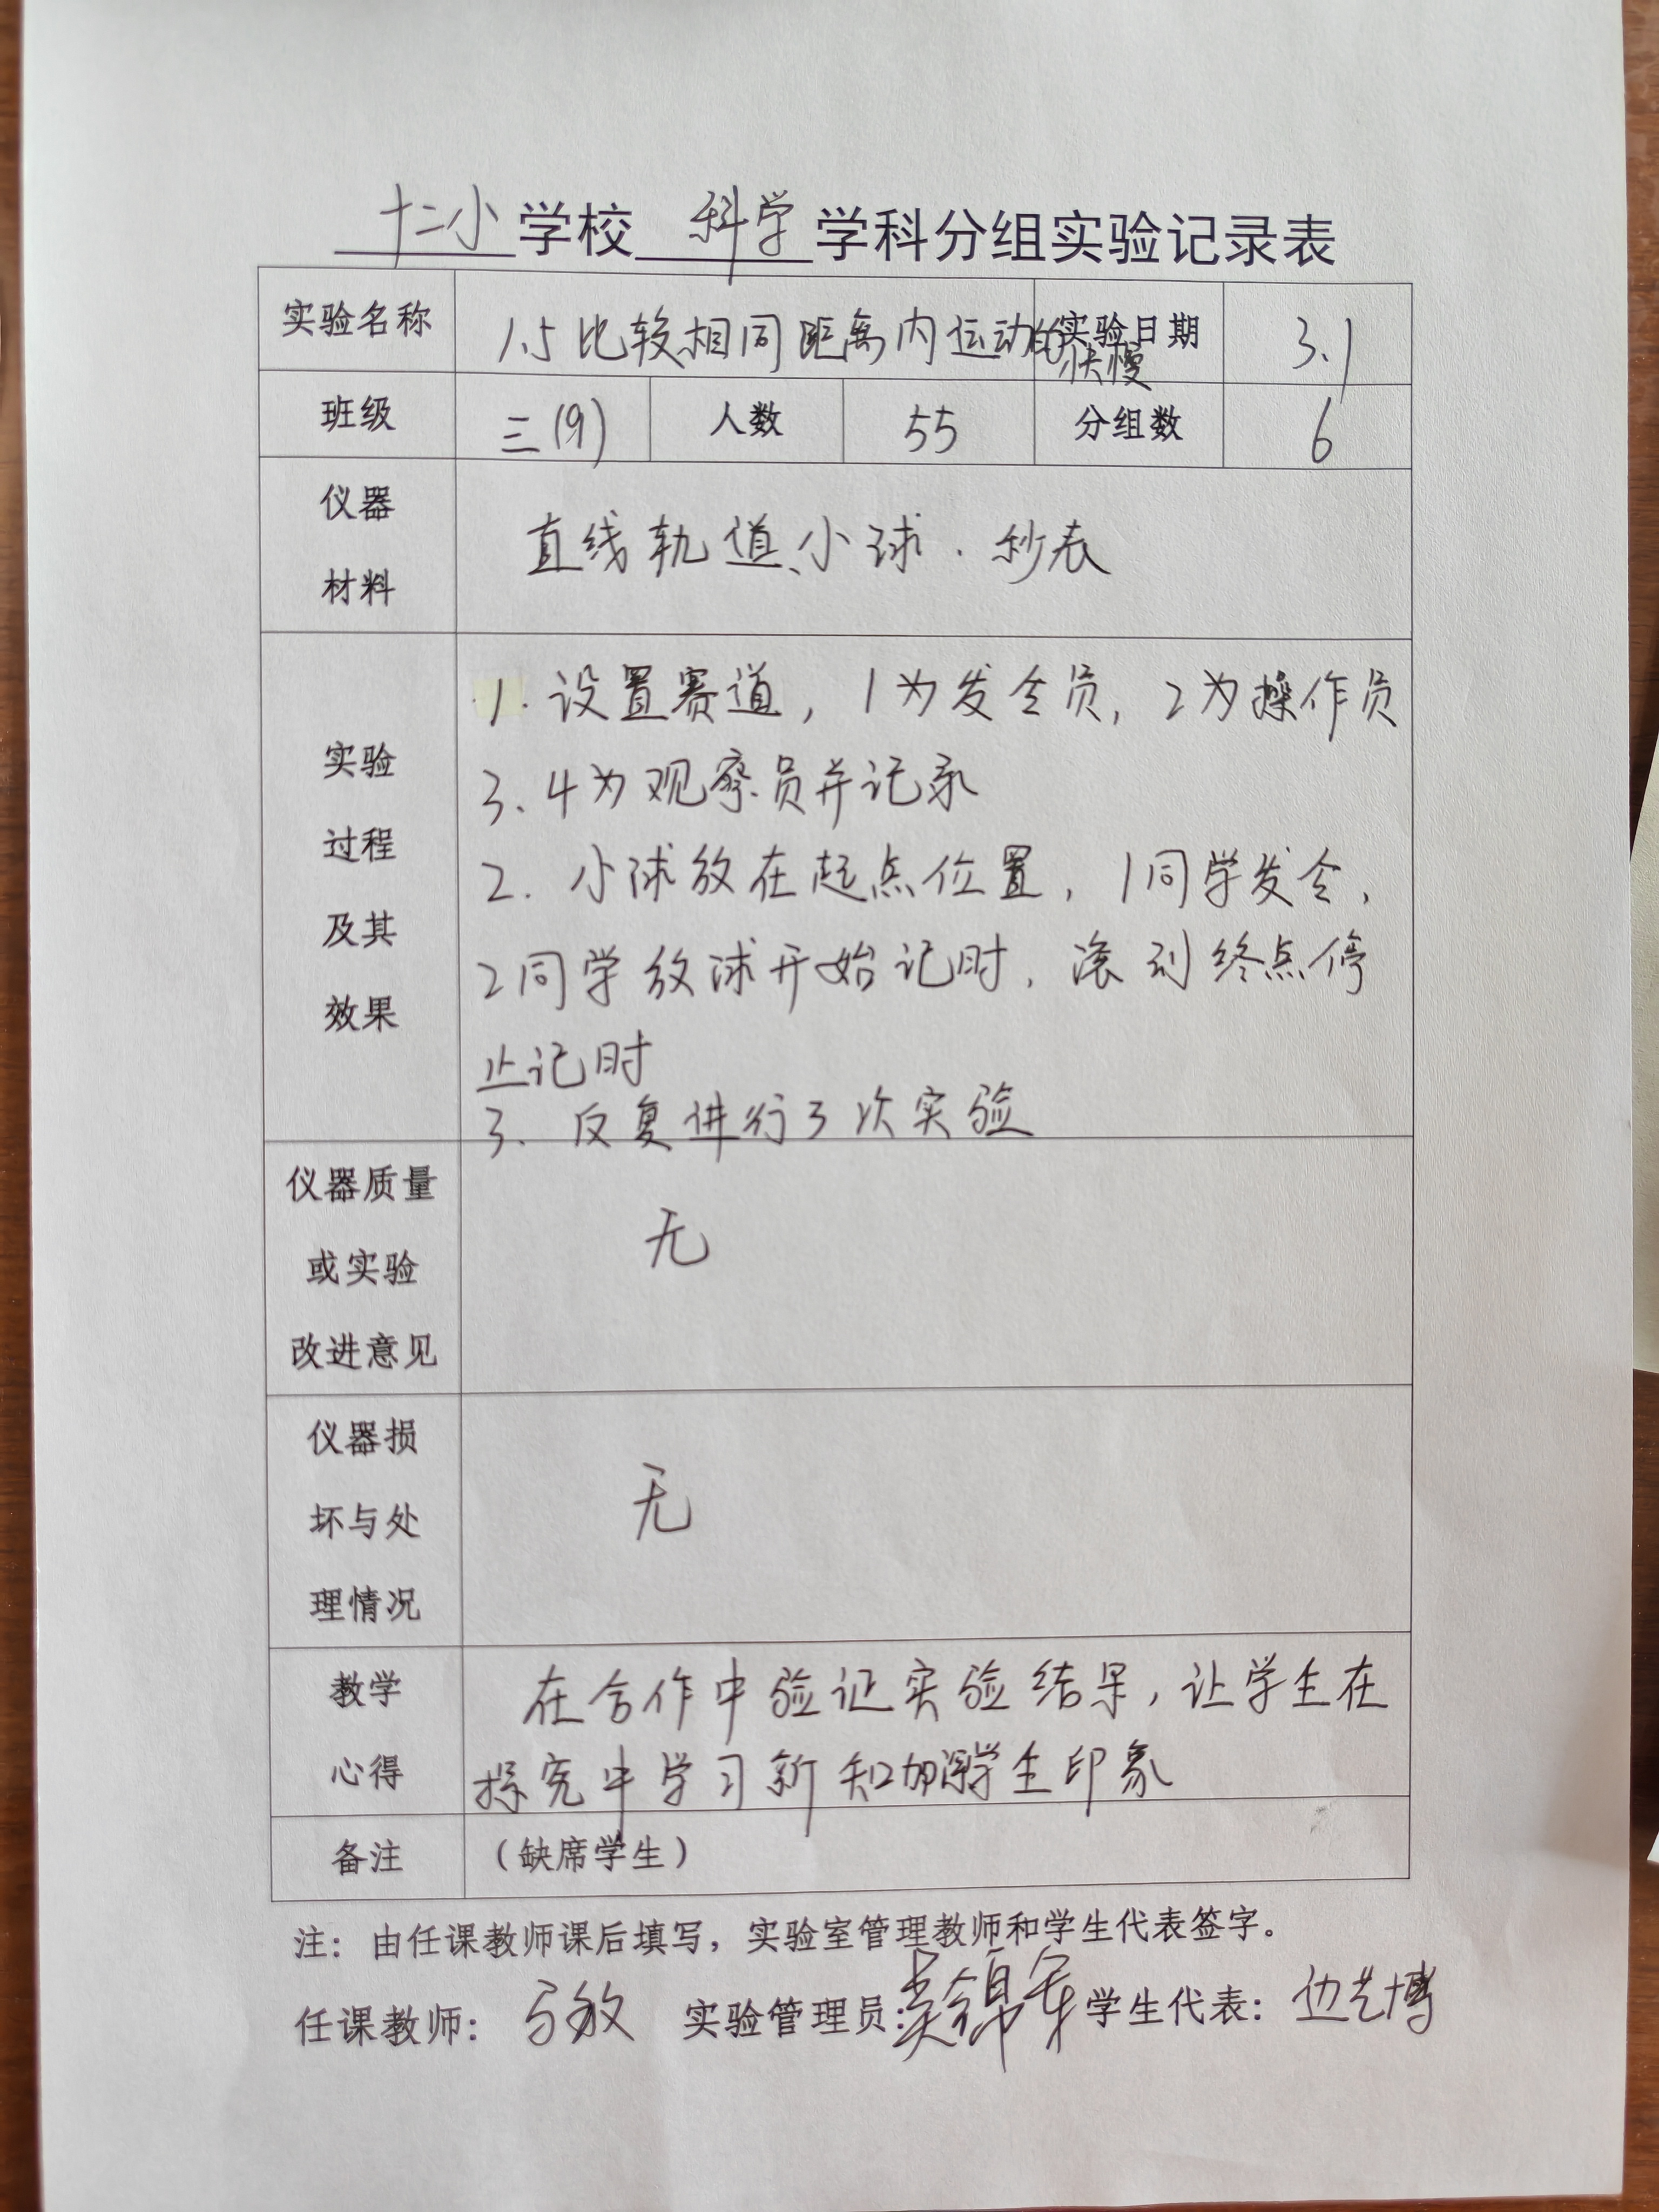 十二小学校 科学 学科分组实验记录表
实验名称 1.5 比较相同距离内运动的快慢 实验日期 3.1
班级 三(9) 人数 55 分组数 6
仪器
材料
直线轨道、小球、秒表
实验
过程
及其
效果
1. 设置赛道，1为发令员，2为操作员
3、4为观察员并记录
2. 小球放在起点位置，1同学发令，
2同学放球开始记时，滚到终点停
止记时
3. 反复进行3次实验
仪器质量
或实验
改进意见
无
仪器损
坏与处
理情况
无
教学
心得
在合作中验证实验结果，让学生在
探究中学习新知加深学生印象
备注 （缺席学生）
注：由任课教师课后填写，实验室管理教师和学生代表签字。
任课教师： 实验管理员： 学生代表：边艺博